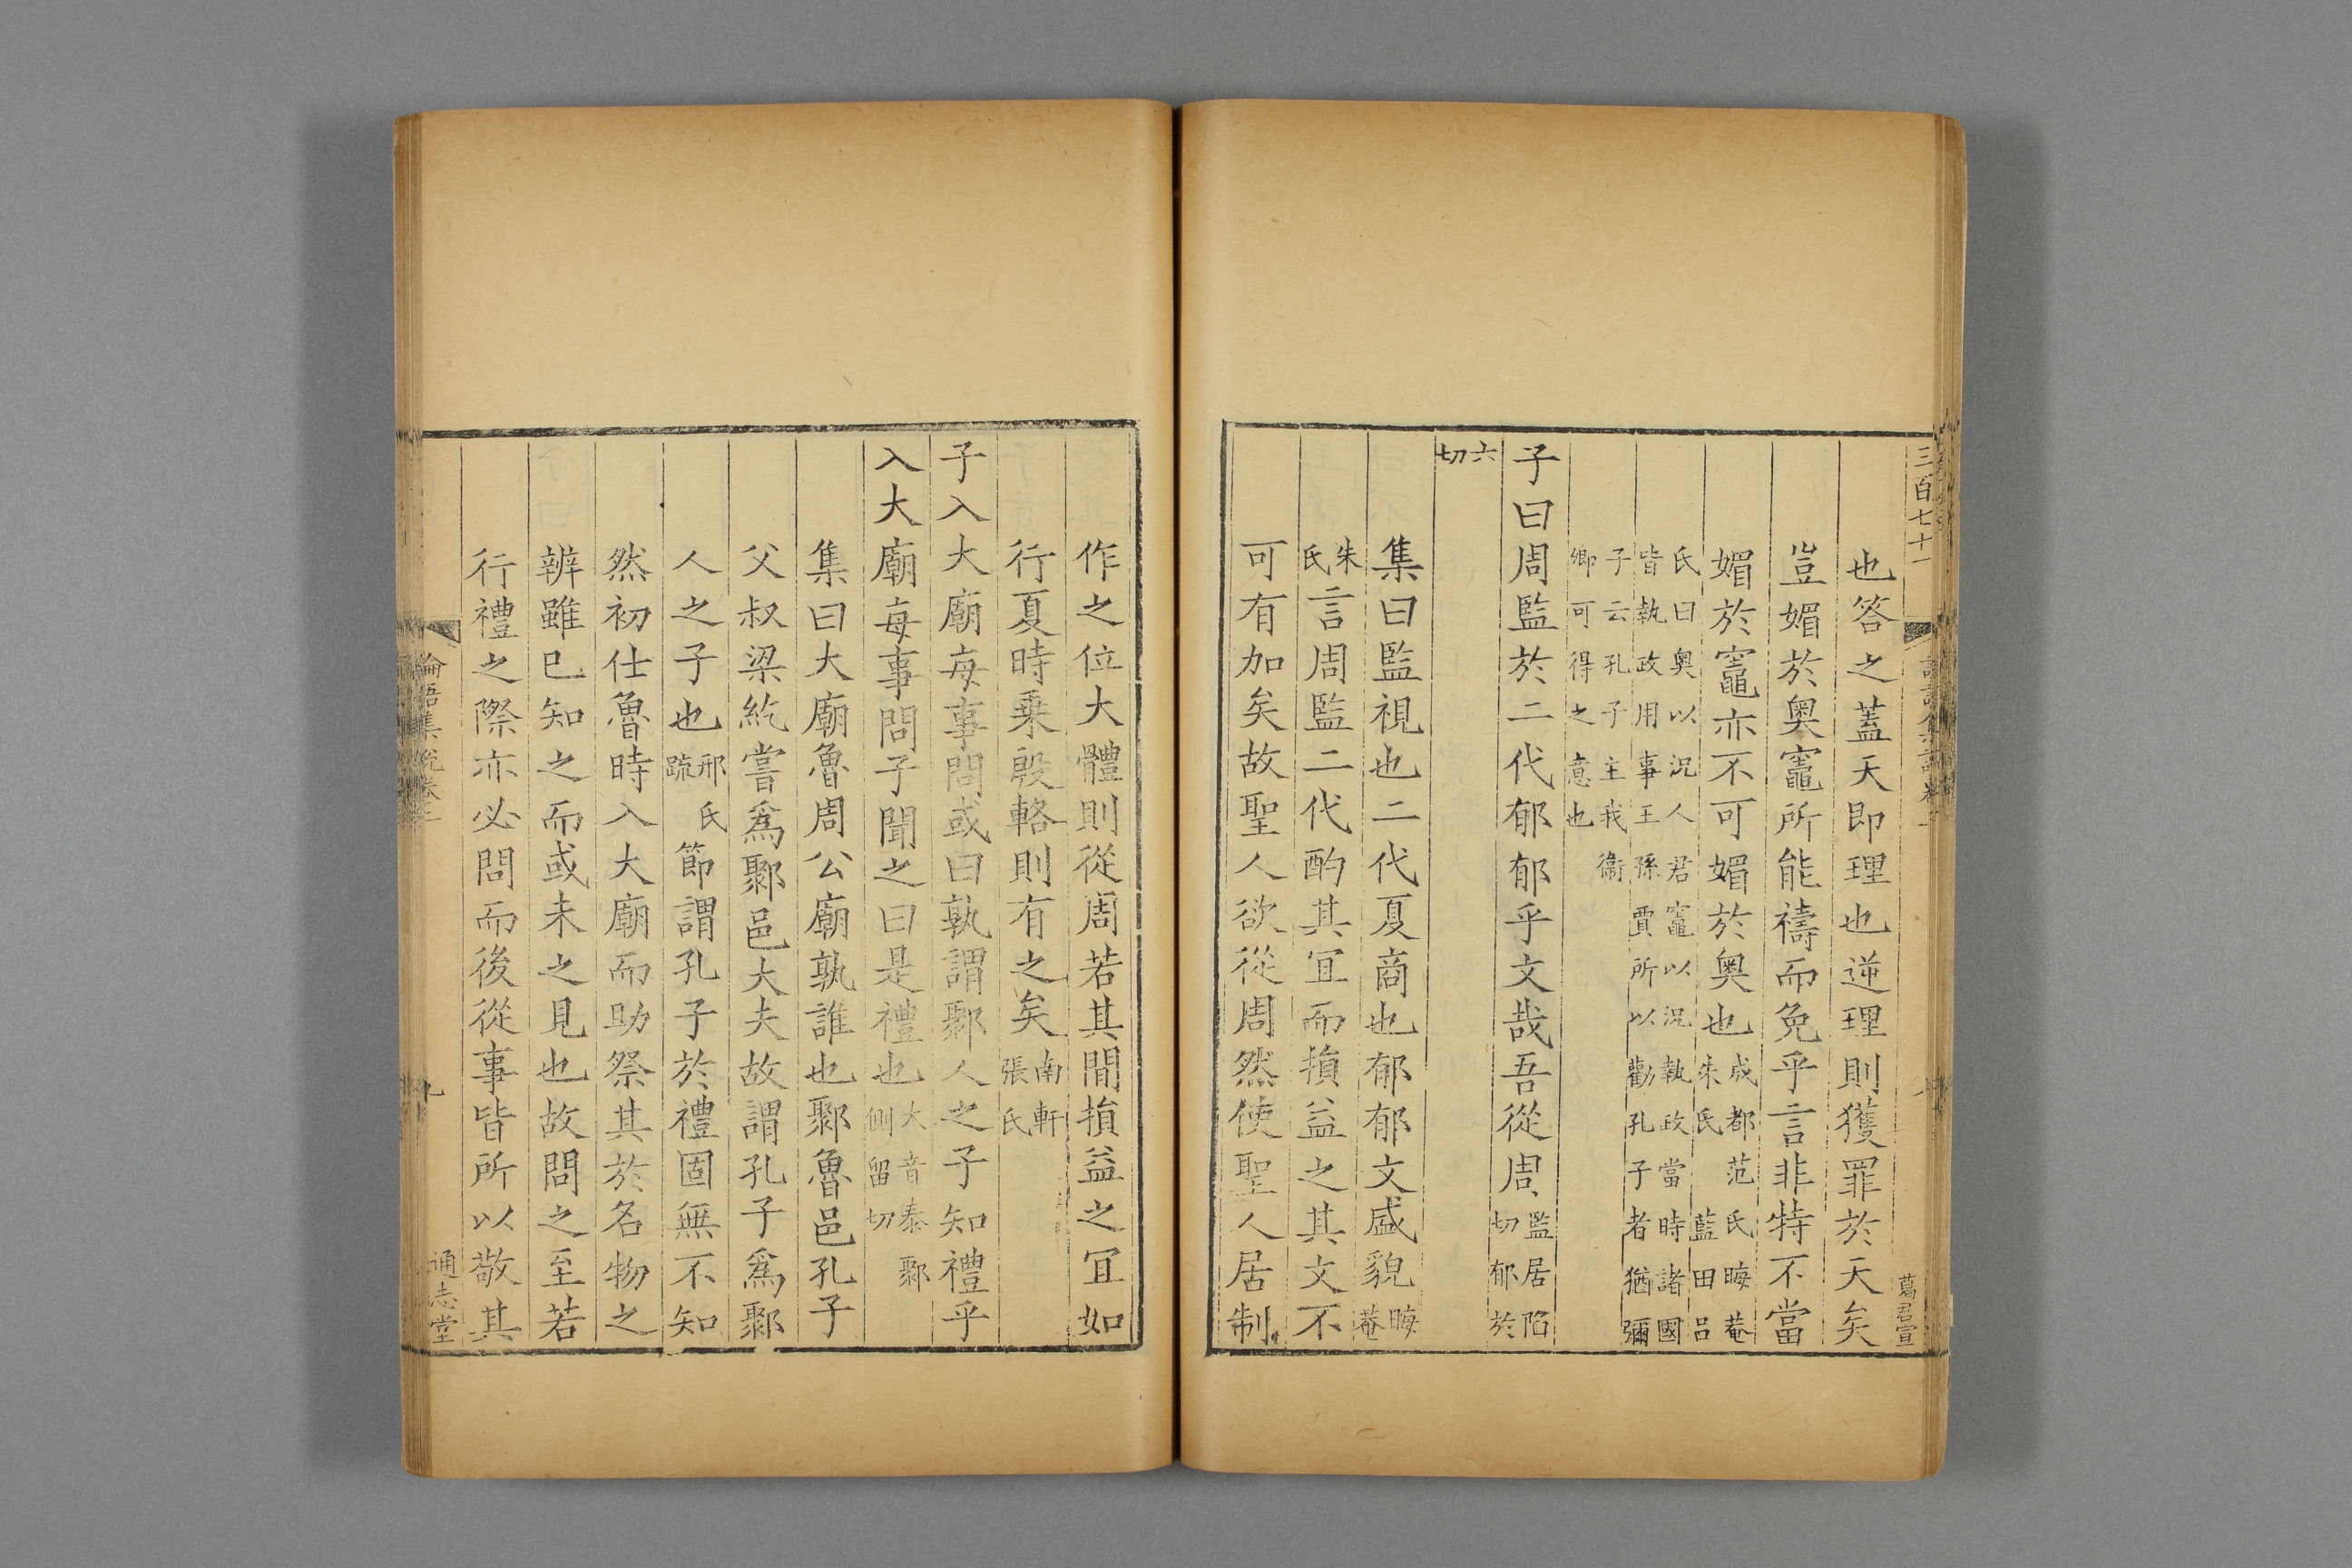 三百七十一
葛君宣
也答之蓋天即理也逆理則獲罪於天矣
豈媚於奧竈所能禱而免乎言非特不當
媚於竈亦不可媚於奧也成都范氏晦菴朱氏藍田呂
氏曰奧以況人君竈以況執政當時諸國皆執政用事王孫賈所以勸孔子者猶彌
子云孔子主我衞卿可得之意也
子曰周監於二代郁郁乎文哉吾從周監居陷切郁於
六切
集曰監視也二代夏商也郁郁文盛貌晦菴
朱氏言周監二代酌其宜而損益之其文不
可有加矣故聖人欲從周然使聖人居制
作之位大體則從周若其間損益之宜如
行夏時乗殷輅則有之矣南軒張氏
子入大廟每事問或曰孰謂鄹人之子知禮乎
入大廟每事問子聞之曰是禮也大音泰鄹側留切
集曰大廟魯周公廟孰誰也鄹魯邑孔子
父叔梁紇嘗爲鄹邑大夫故謂孔子爲鄹
人之子也邢氏疏節謂孔子於禮固無不知
然初仕魯時入大廟而助祭其於名物之
辨雖已知之而或未之見也故問之至若
行禮之際亦必問而後從事皆所以敬其
論語集說卷二
九
通志堂